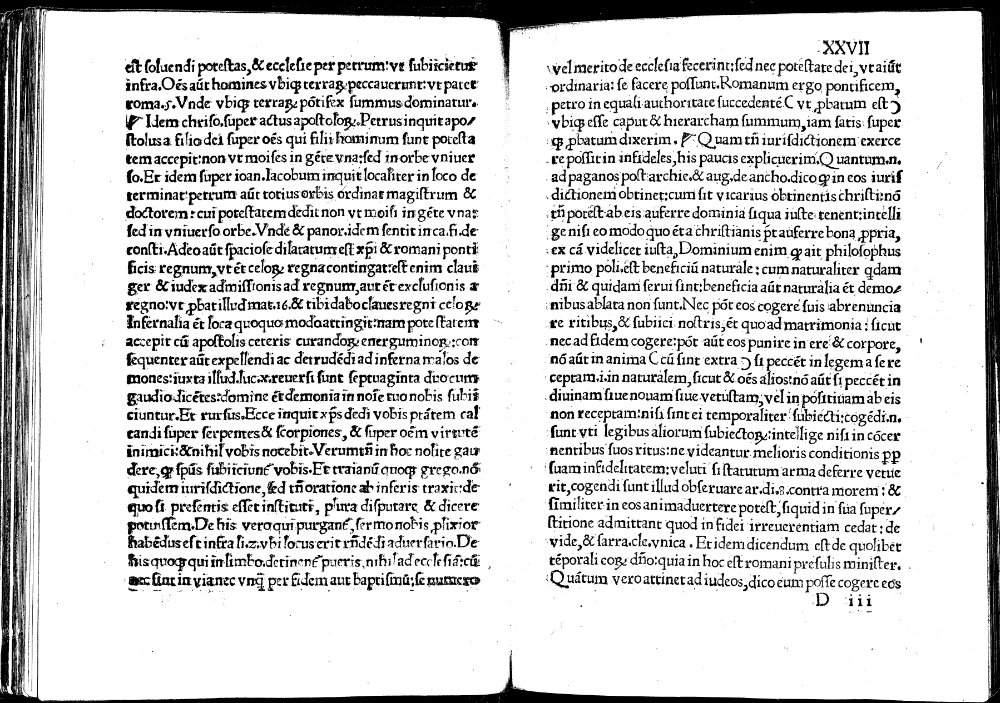 est soluendi potestas, & ecclesie per petrum: vt subiicietur
infra. Oẽs aũt homines vbiqꝫ terraꝝ peccauerunt: vt patet
roma.5. Vnde vbiqꝫ terraꝝ põtifex summus dominatur.
Idem chriso. super actus apostoloꝝ. Petrus inquit apo/
stolus a filio dei super oẽs qui filii hominum sunt potesta
tem accepit: non vt moises in gẽte vna: sed in orbe vniuer
so. Et idem super ioan. Iacobum inquit localiter in loco de
terminat: petrum aũt totius orbis ordinat magistrum &
doctorem: cui potestatem dedit non vt moisi in gẽte vna:
sed in vniuerso orbe. Vnde & panor. idem sentit in ca. fi. de
consti. Adeo aũt spaciose dilatatum est xp̃i & romani ponti
ficis regnum, vt ẽt celoꝝ regna contingat: est enim claui
ger & iudex admissionis ad regnum, aut ẽt exclusionis a
regno: vt ꝓbat illud mat.16. & tibi dabo claues regni celoꝝ
Infernalia ẽt loca quoquo modo attingit: nam potestatem
accepit cũ apostolis ceteris curandoꝝ energuminoꝝ: con
sequenter aũt expellendi ac detrudẽdi ad inferna malos de
mones: iuxta illud. luc.x. reuersi sunt septuaginta duo cum
gaudio dicẽtes: domine ẽt demonia in noĩe tuo nobis subii
ciuntur. Et rursus. Ecce inquit xp̃s dedi vobis ptãtem cal
candi super serpentes & scorpiones, & super oẽm virtutẽ
inimici: & nihil vobis nocebit. Verumtñ in hoc nolite gau
dere, ꝙ spũs subiiciunť vobis. Et traianũ quoqꝫ grego. nõ
quidem iurisdictione, sed tñ oratione ab inferis traxit: de
quo si presentis esset instituti, plura disputare & dicere
potuissem. De his vero qui purganť, sermo nobis ꝓlixior
habẽdus est infra li.2. vbi locus erit rñdẽdi aduersario. De
his quoqꝫ qui in limbo detinenť pueris, nihil ad ecclesiã: cũ
nec sint in via nec vnꝗ̃ per fidem aut baptismũ: se numero
XXVII
vel merito de ecclesia fecerint: sed nec potestate dei, vt aiũt
ordinaria: se facere possunt. Romanum ergo pontificem,
petro in equali authoritate succedentẽ C vt ꝓbatum est Ɔ
vbiqꝫ esse caput & hierarcham summum, iam satis super
qꝫ ꝓbatum dixerim. Quam tñ iurisdictionem exerce
re possit in infideles, his paucis explicuerim. Quantum.n.
ad paganos post archie. & aug. de ancho. dico ꝙ in eos iuris
dictionem obtinet: cum sit vicarius obtinentis christi: nõ
tñ potest ab eis auferre dominia siqua iuste tenent: intelli
ge nisi eo modo quo ẽt a christianis pt̃ auferre bona ꝓpria,
ex cã videlicet iusta. Dominium enim ꝙ ait philosophus
primo poli. est beneficiũ naturale: cum naturaliter quidam
dñi & quidam serui sint: beneficia aũt naturalia ẽt demo/
nibus ablata non sunt. Nec põt eos cogere suis abrenuncia
re ritibus, & subiici nostris, ẽt quo ad matrimonia: sicut
nec ad fidem cogere: põt aũt eos punire in ere & corpore,
nõ aũt in anima C cũ sint extra Ɔ si peccẽt in legem a se re
ceptam .i. in naturalem, sicut & oẽs alios: nõ aũt si peccẽt in
diuinam siue nouam siue vetustam, vel in positiuam ab eis
non receptam: nisi sint ei temporaliter subiecti: cogẽdi.n.
sunt vti legibus aliorum subiectoꝝ: intellige nisi in cõcer
nentibus suos ritus: ne videantur melioris conditionis ꝓp
suam infidelitatem: veluti si statutum arma deferre vetue
rit, cogendi sunt illud obseruare ar. di.8. contra morem: &
similiter in eos animaduertere potest, siquid in sua super/
stitione admittant quod in fidei irreuerentiam cedat: de
vide, & farra. cle. vnica. Et idem dicendum est de quolibet
tẽporali eoꝝ dño: quia in hoc est romani presulis minister.
Quãtum vero attinet ad iudeos, dico eum posse cogere eos
D iii